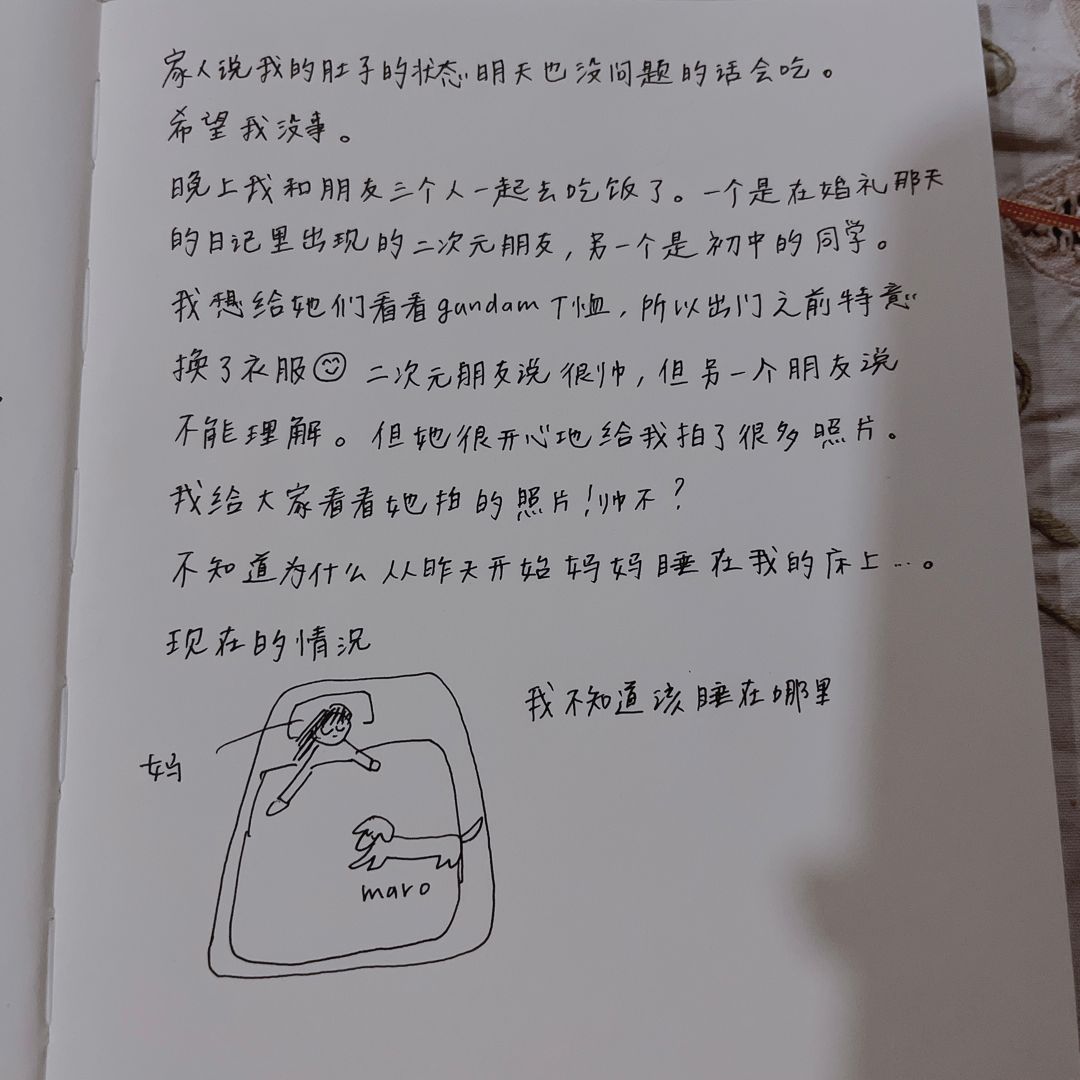 家人说我的肚子的状态明天也没问题的话会吃。
希望我没事。
晚上我和朋友三个人一起去吃饭了。一个是在婚礼那天
的日记里出现的二次元朋友，另一个是初中的同学。
我想给她们看看gundam T恤，所以出门之前特意
换了衣服😊 二次元朋友说很帅，但另一个朋友说
不能理解。但她很开心地给我拍了很多照片。
我给大家看看她拍的照片！帅不？
不知道为什么从昨天开始妈妈睡在我的床上…。
现在的情况
我不知道该睡在哪里
妈
maro